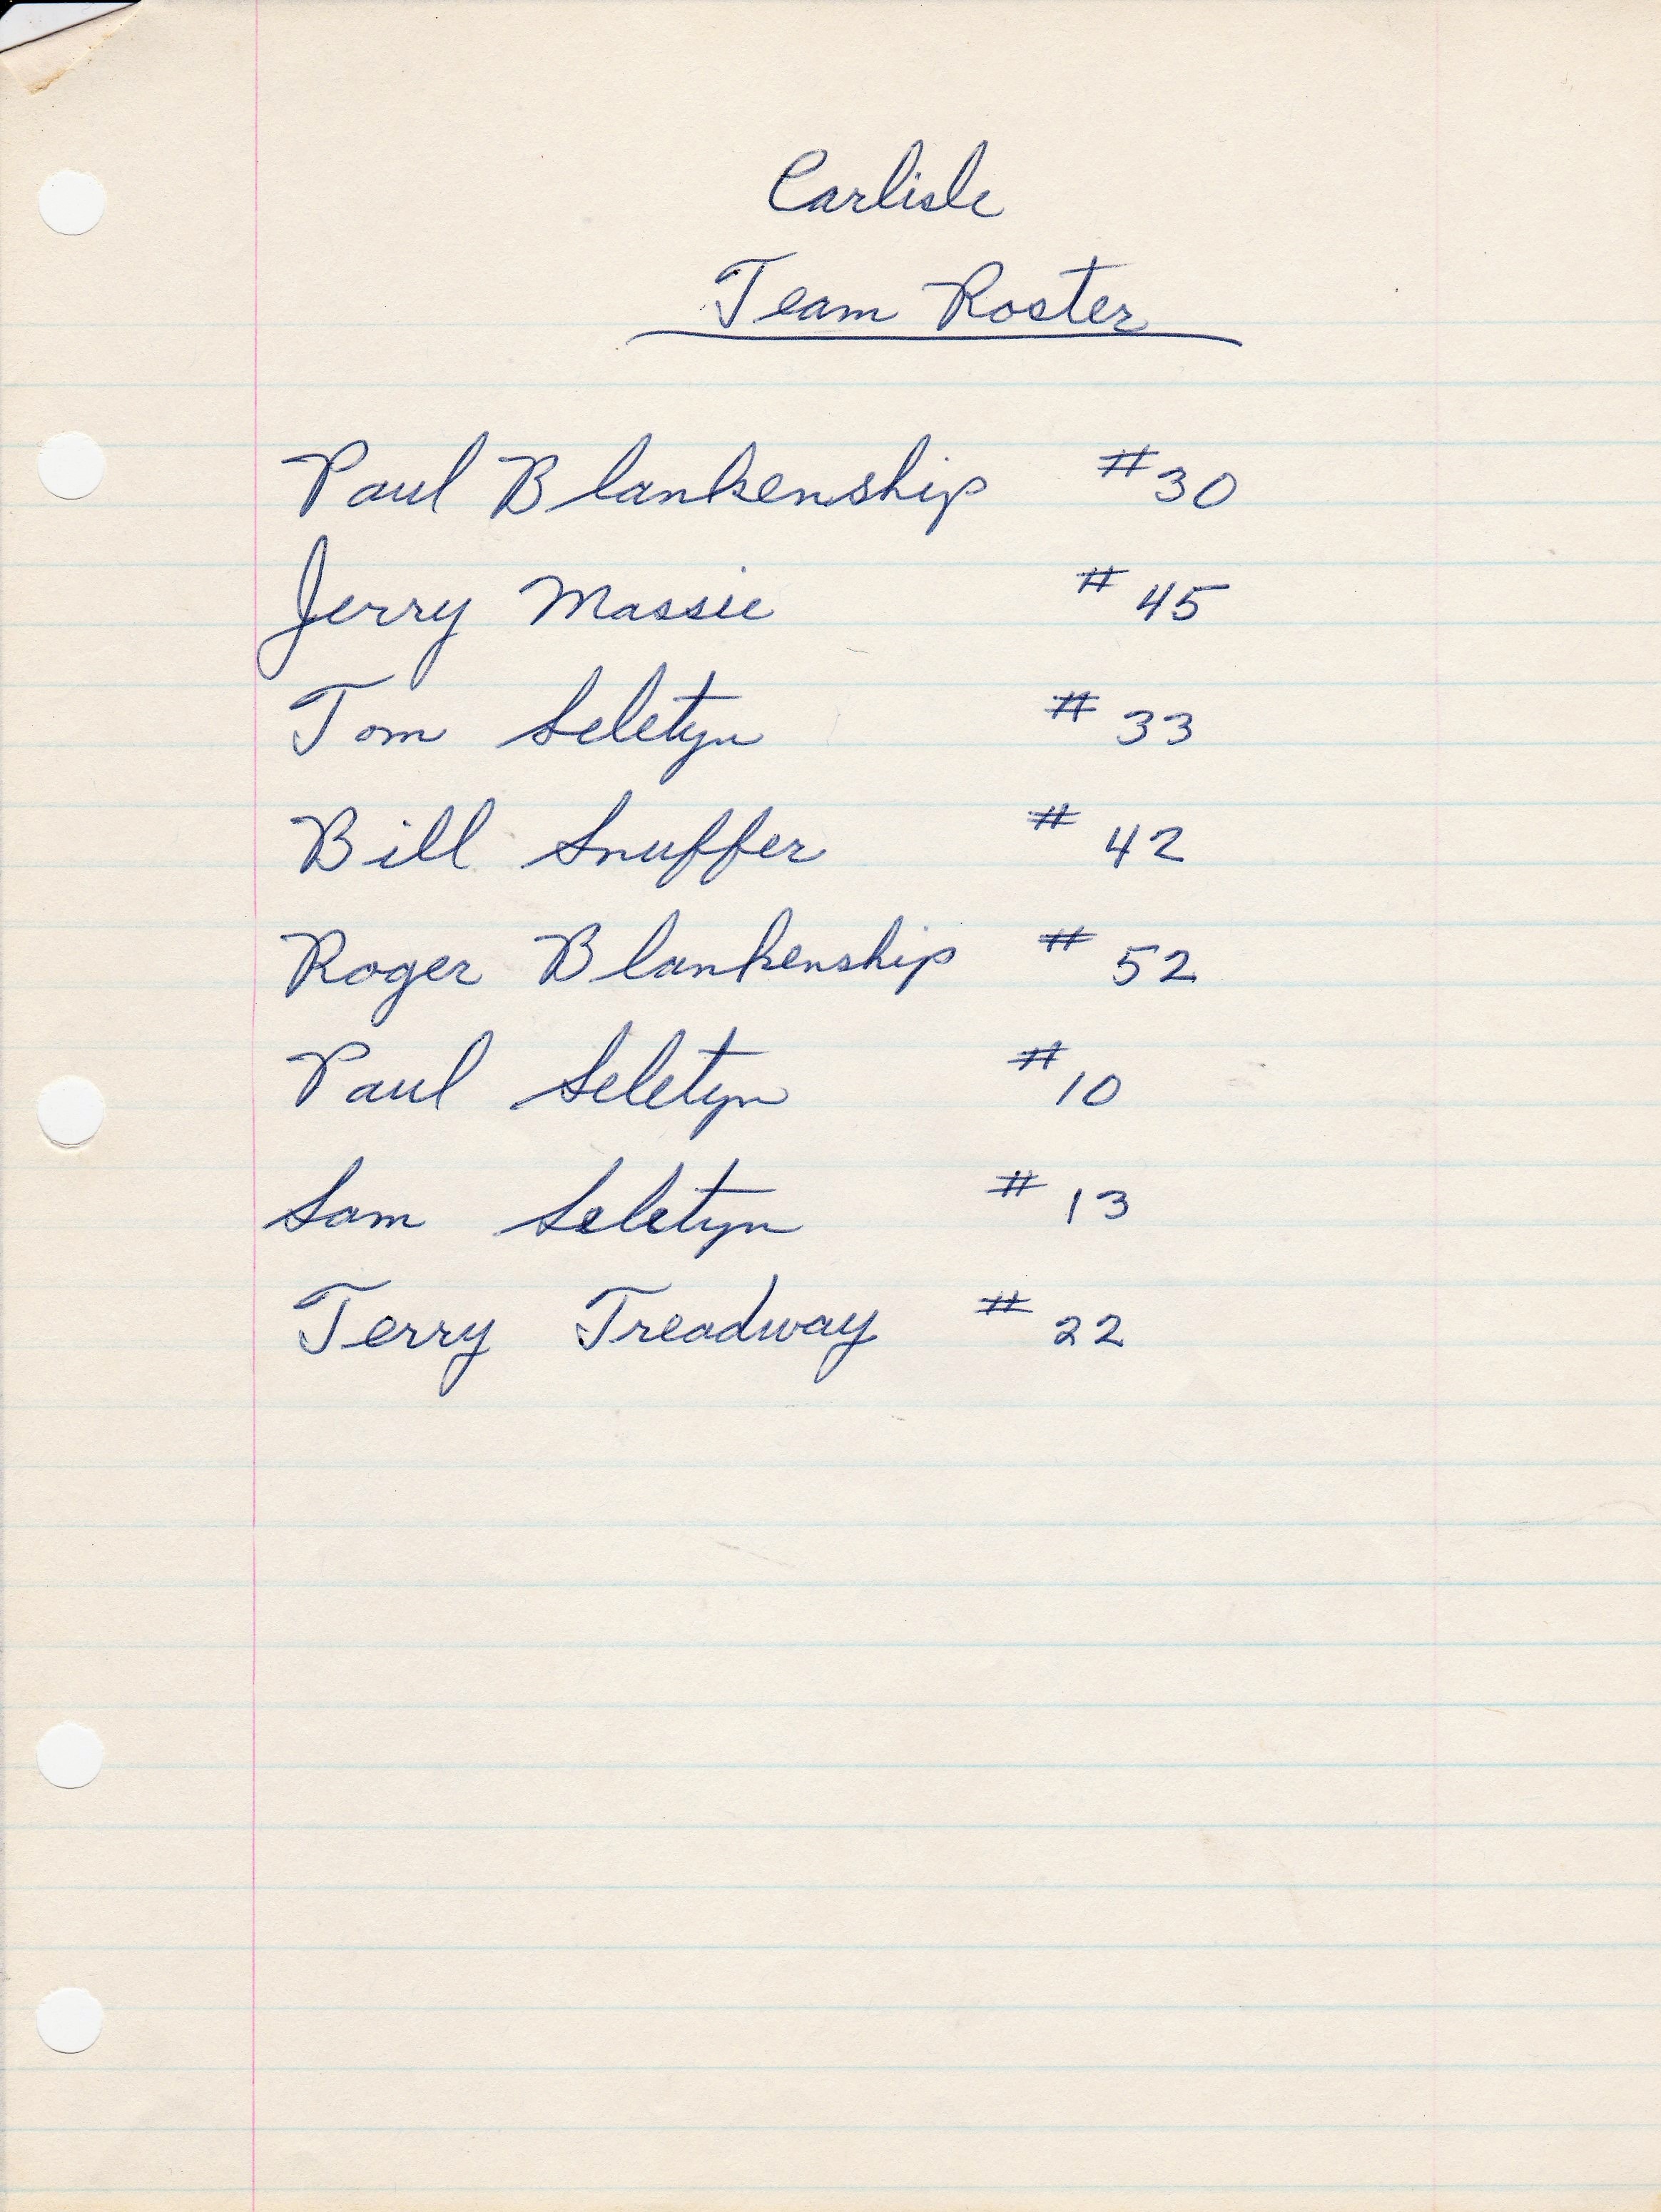 Carlisle
Team Roster
Paul Blankenship #30
Jerry Massie # 45
Tom Seletyn # 33
Bill Snuffer # 42
Roger Blankenship # 52
Paul Seletyn #10
Sam Seletyn # 13
Terry Treadway # 22